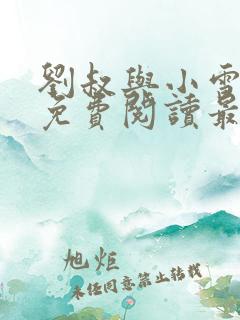 劉叔與小雪
免費閱讀最
旭炬
未经同意禁止转载